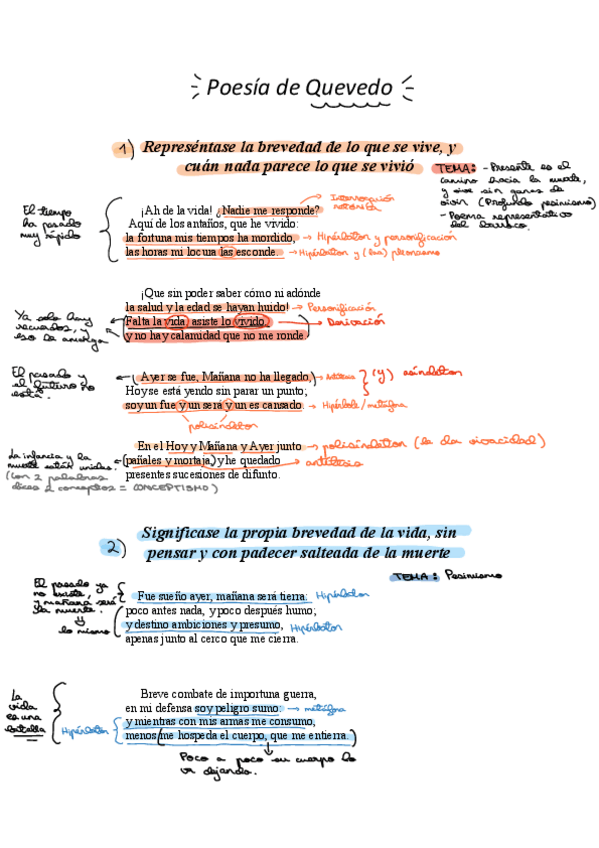 Poesía de Quevedo
1) Represéntase la brevedad de lo que se vive, y
cuán nada parece lo que se vivió
TEMA: - Presente es el
camino hacia la muerte,
y vive sin ganas de
vivir (Profundo pesimismo)
- Poema representativo
del barroco.
Interrogación
retórica
El tiempo
ha pasado
muy rápido
¡Ah de la vida! ¿Nadie me responde?
Aquí de los antaños, que he vivido:
la fortuna mis tiempos ha mordido, → Hipérbaton y personificación
las horas mi locura las esconde. → Hipérbaton y (las) pleonasmo
¡Que sin poder saber cómo ni adónde
la salud y la edad se hayan huido! → Personificación
Ya solo hay
recuerdos, y
eso la amarga
Falta la vida, asiste lo vivido, → Derivación
y no hay calamidad que no me ronde.
El pasado y
el futuro no
está.
Ayer se fue, Mañana no ha llegado, → Antítesis (y) asíndeton
Hoy se está yendo sin parar un punto;
soy un fue y un será y un es cansado. → Hipérbole / metáfora
polisíndeton
En el Hoy y Mañana y Ayer junto → polisíndeton (la da vivacidad)
La infancia y la
muerte están unidas.
(con 2 palabras
dices 2 conceptos = CONCEPTISMO)
pañales y mortaja, y he quedado → antítesis
presentes sucesiones de difunto.
2) Significase la propia brevedad de la vida, sin
pensar y con padecer salteada de la muerte
TEMA: Pesimismo
El pasado ya
no existe,
y mañana será
la muerte.
y
lo mismo
Fue sueño ayer, mañana será tierra: Hipérbaton
poco antes nada, y poco después humo;
y destino ambiciones y presumo, Hipérbaton
apenas junto al cerco que me cierra.
La
vida
es una
batalla
Hipérbaton
Breve combate de importuna guerra,
en mi defensa soy peligro sumo: → metáfora
y mientras con mis armas me consumo,
menos me hospeda el cuerpo, que me entierra.
Poco a poco su cuerpo lo
va dejando.